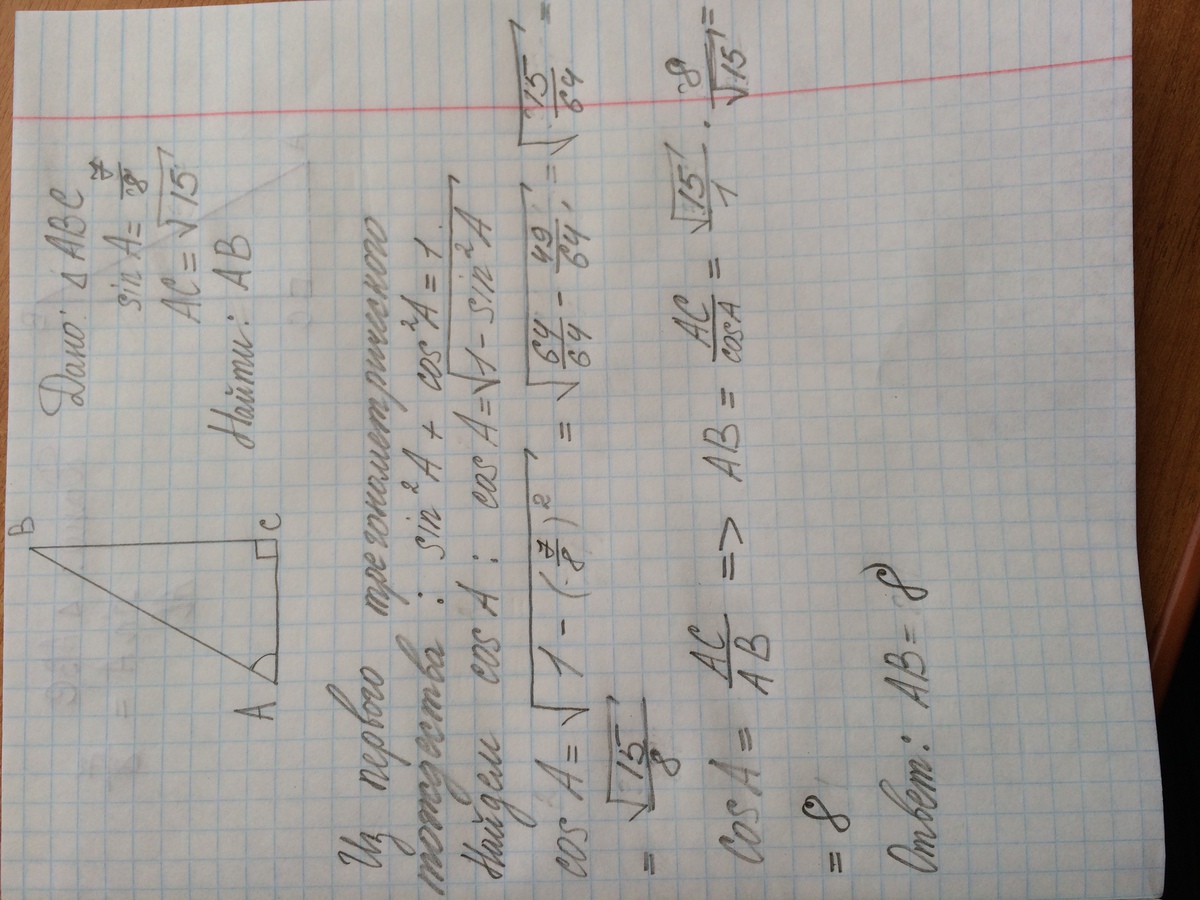 B
A
C
Дано: △ ABC
sin A = 7/8
AC = √15
Найти: AB
Из первого тригонометрического
тождества: sin²A + cos²A = 1.
Найдем cos A: cos A = √(1 - sin²A)
cos A = √(1 - (7/8)²) = √(64/64 - 49/64) = √(15/64) =
= √15/8
Cos A = AC/AB => AB = AC/cosA = √15/1 · 8/√15 =
= 8
Ответ: AB = 8